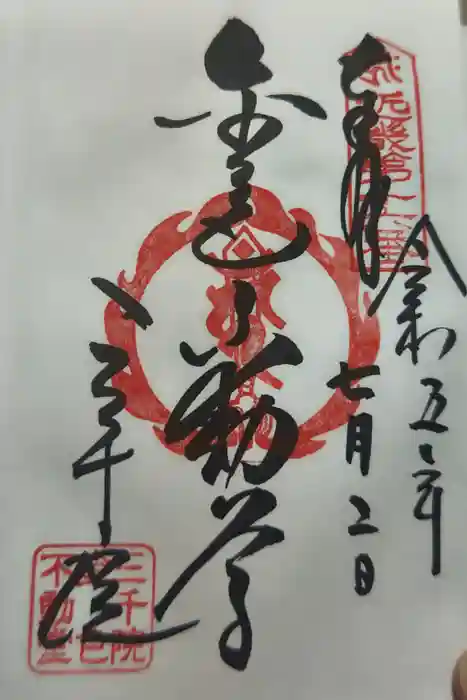 奉拝
令和五年
七月二日
金色不動尊
三千院
三千院
金色
不動堂